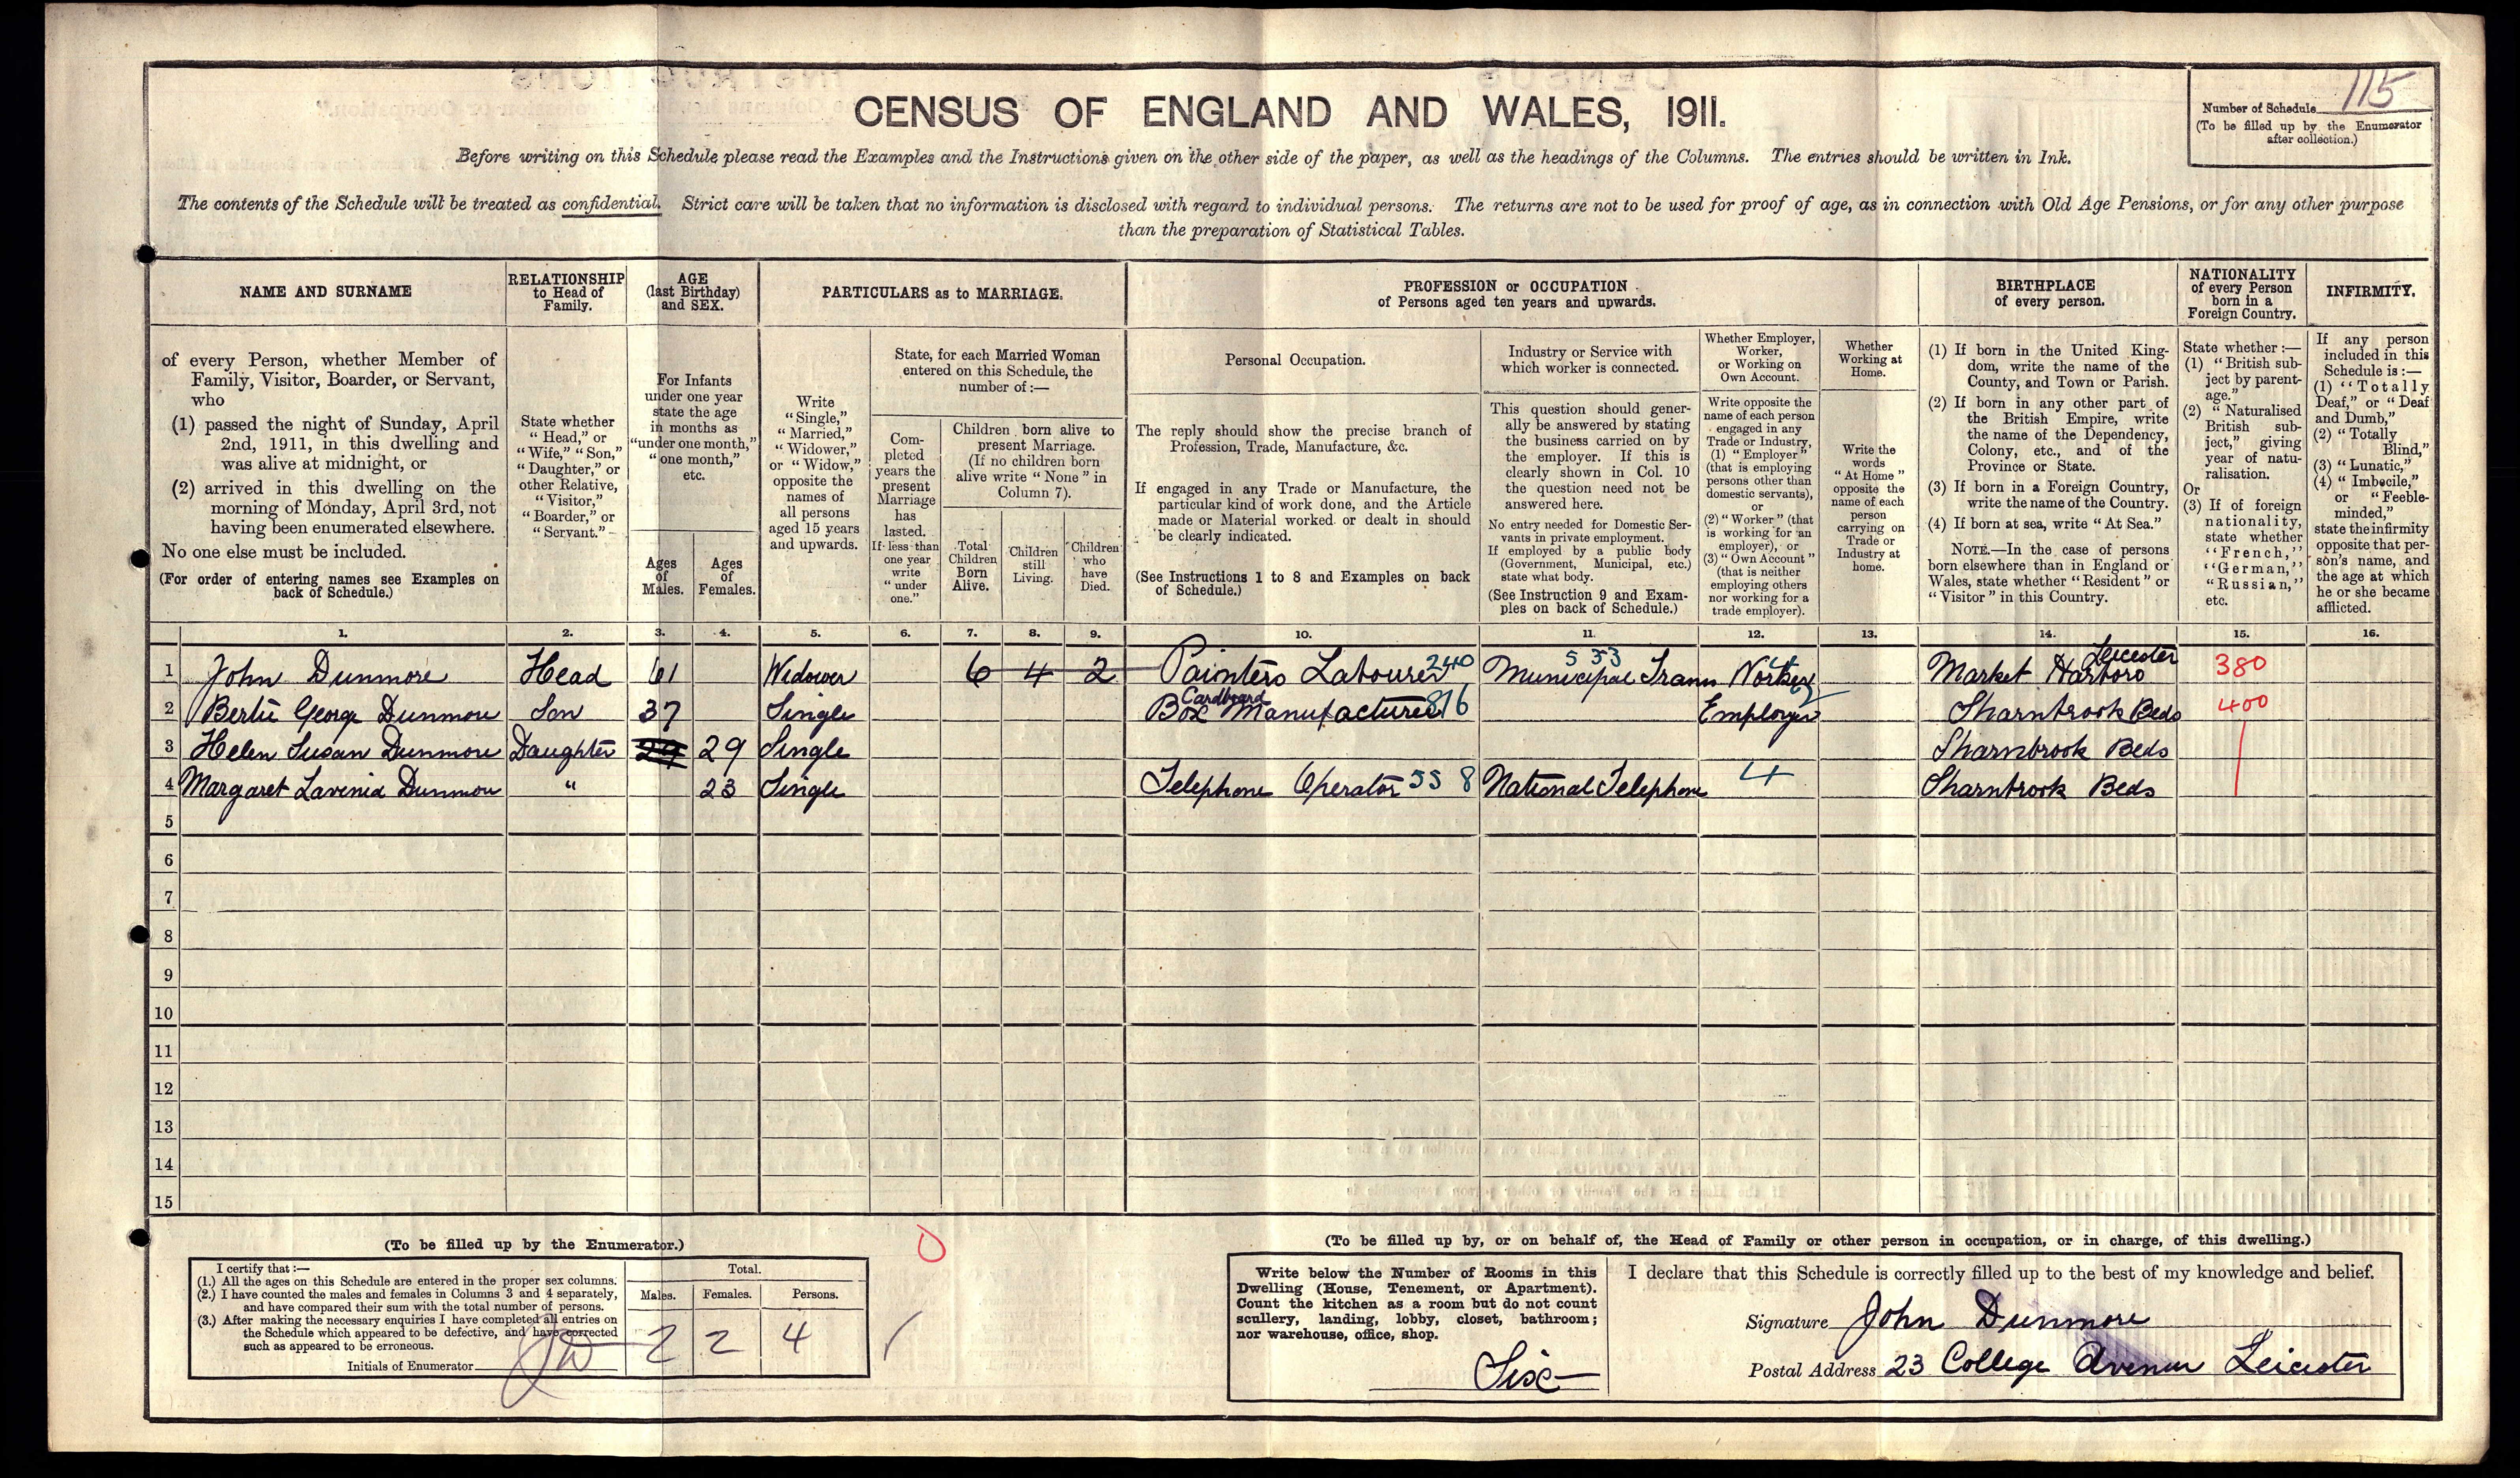 CENSUS OF ENGLAND AND WALES, 1911.
Number of Schedule 115
(To be filled up by the Enumerator
after collection.)
Before writing on this Schedule please read the Examples and the Instructions given on the other side of the paper, as well as the headings of the Columns. The entries should be written in Ink.
The contents of the Schedule will be treated as confidential. Strict care will be taken that no information is disclosed with regard to individual persons. The returns are not to be used for proof of age, as in connection with Old Age Pensions, or for any other purpose
than the preparation of Statistical Tables.
NAME AND SURNAME
of every Person, whether Member of
Family, Visitor, Boarder, or Servant,
who
(1) passed the night of Sunday, April
2nd, 1911, in this dwelling and
was alive at midnight, or
(2) arrived in this dwelling on the
morning of Monday, April 3rd, not
having been enumerated elsewhere.
No one else must be included.
(For order of entering names see Examples on
back of Schedule.)
RELATIONSHIP
to Head of
Family.
State whether
"Head," or
"Wife," "Son,"
"Daughter," or
other Relative,
"Visitor,"
"Boarder," or
"Servant."
AGE
(last Birthday)
and SEX.
For Infants
under one year
state the age
in months as
"under one month,"
"one month,"
etc.
Ages
of
Males.
Ages
of
Females.
PARTICULARS as to MARRIAGE.
Write
"Single,"
"Married,"
"Widower,"
or "Widow,"
opposite the
names of
all persons
aged 15 years
and upwards.
State, for each Married Woman
entered on this Schedule, the
number of:—
Com-
pleted
years the
present
Marriage
has
lasted.
If less than
one year
write
"under
one."
Children born alive to
present Marriage.
(If no children born
alive write "None" in
Column 7).
Total
Children
Born
Alive.
Children
still
Living.
Children
who
have
Died.
PROFESSION or OCCUPATION
of Persons aged ten years and upwards.
Personal Occupation.
The reply should show the precise branch of
Profession, Trade, Manufacture, &c.
If engaged in any Trade or Manufacture, the
particular kind of work done, and the Article
made or Material worked or dealt in should
be clearly indicated.
(See Instructions 1 to 8 and Examples on back
of Schedule.)
Industry or Service with
which worker is connected.
This question should gener-
ally be answered by stating
the business carried on by
the employer. If this is
clearly shown in Col. 10
the question need not be
answered here.
No entry needed for Domestic Ser-
vants in private employment.
If employed by a public body
(Government, Municipal, etc.)
state what body.
(See Instruction 9 and Exam-
ples on back of Schedule.)
Whether Employer,
Worker,
or Working on
Own Account.
Write opposite the
name of each person
engaged in any
Trade or Industry,
(1) "Employer"
(that is employing
persons other than
domestic servants),
or
(2) "Worker" (that
is working for an
employer), or
(3) "Own Account"
(that is neither
employing others
nor working for a
trade employer).
Whether
Working at
Home.
Write the
words
"At Home"
opposite the
name of each
person
carrying on
Trade or
Industry at
home.
BIRTHPLACE
of every person.
(1) If born in the United King-
dom, write the name of the
County, and Town or Parish.
(2) If born in any other part of
the British Empire, write
the name of the Dependency,
Colony, etc., and of the
Province or State.
(3) If born in a Foreign Country,
write the name of the Country.
(4) If born at sea, write "At Sea."
NOTE.—In the case of persons
born elsewhere than in England or
Wales, state whether "Resident" or
"Visitor" in this Country.
NATIONALITY
of every Person
born in a
Foreign Country.
State whether:—
(1) "British sub-
ject by parent-
age."
(2) "Naturalised
British sub-
ject," giving
year of natu-
ralisation.
Or
(3) If of foreign
nationality,
state whether
"French,"
"German,"
"Russian,"
etc.
INFIRMITY.
If any person
included in this
Schedule is:—
(1) "Totally
Deaf," or "Deaf
and Dumb,"
(2) "Totally
Blind,"
(3) "Lunatic,"
(4) "Imbecile,"
or "Feeble-
minded,"
state the infirmity
opposite that per-
son's name, and
the age at which
he or she became
afflicted.
1. 2. 3. 4. 5. 6. 7. 8. 9. 10. 11. 12. 13. 14. 15. 16.
1 John Dunmore Head 61 Widower 6 4 2 Painters Labourer 240 Municipal Trams 533 Worker Market Harboro Leicester 380
2 Bertie George Dunmore Son 37 Single Cardboard Box Manufacturer 876 Employer Sharnbrook Beds 400
3 Helen Susan Dunmore Daughter 29 29 Single Sharnbrook Beds
4 Margaret Lavinia Dunmore " 23 Single Telephone Operator 55 8 National Telephone 4 Sharnbrook Beds
5
6
7
8
9
10
11
12
13
14
15
(To be filled up by the Enumerator.)
I certify that:—
(1.) All the ages on this Schedule are entered in the proper sex columns.
(2.) I have counted the males and females in Columns 3 and 4 separately,
and have compared their sum with the total number of persons.
(3.) After making the necessary enquiries I have completed all entries on
the Schedule which appeared to be defective, and have corrected
such as appeared to be erroneous.
Initials of Enumerator
Total.
Males. Females. Persons.
2 2 4
(To be filled up by, or on behalf of, the Head of Family or other person in occupation, or in charge, of this dwelling.)
Write below the Number of Rooms in this
Dwelling (House, Tenement, or Apartment).
Count the kitchen as a room but do not count
scullery, landing, lobby, closet, bathroom;
nor warehouse, office, shop.
Six
I declare that this Schedule is correctly filled up to the best of my knowledge and belief.
Signature John Dunmore
Postal Address 23 College Avenue Leicester